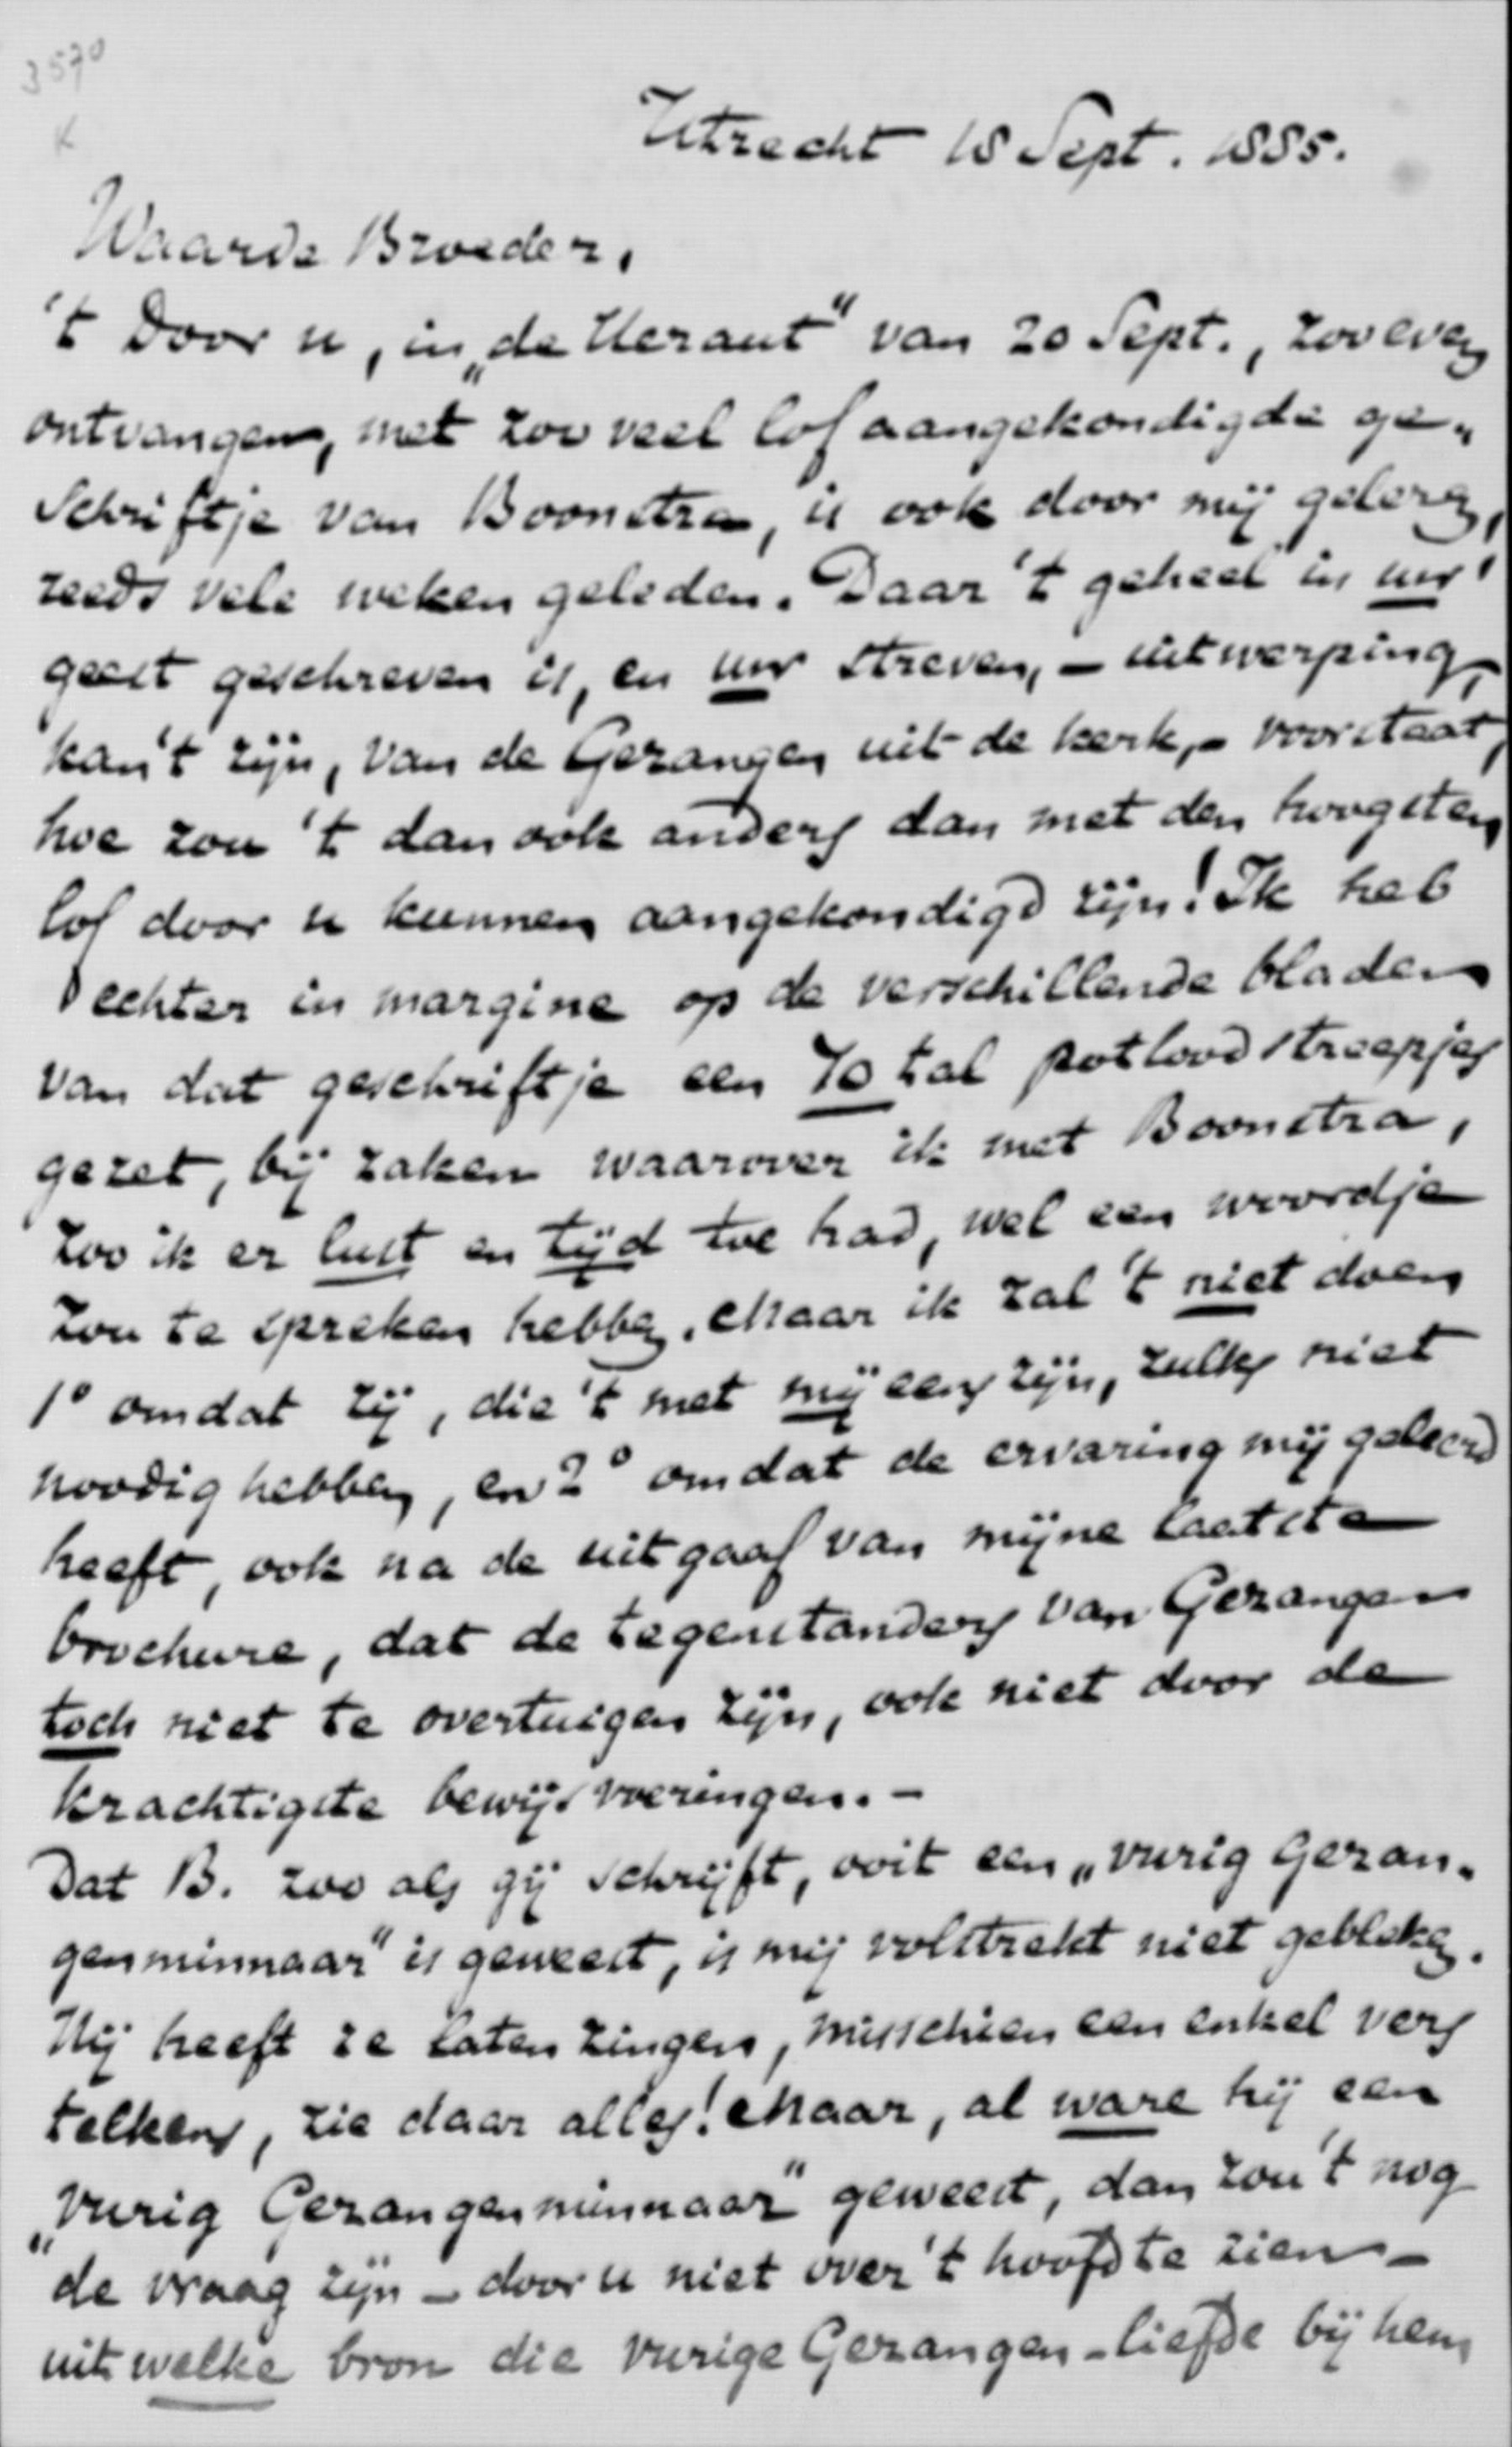 3570
K
Utrecht 18 Sept. 1885.
Waarde Broeder,
't Door u, in „de Heraut" van 20 Sept., zooeven
ontvangen, met zoo veel lof aangekondigde ge„
schriftje van Boonstra, is ook door mij gelezen,
reeds vele weken geleden. Daar 't geheel in uw'
geest geschreven is, en uw streven, – uitwerping,
kan 't zijn, van de Gezangen uit de kerk, – voorstaat,
hoe zou 't dan ook anders dan met den hoogsten
lof door u kunnen aangekondigd zijn! Ik heb
echter in margine op de verschillende bladen
van dat geschriftje een 70 tal potloodstreepjes
gezet, bij zaken waarover ik met Boonstra,
zoo ik er lust en tijd toe had, wel een woordje
zou te spreken hebben. Maar ik zal 't niet doen
1° omdat zij, die 't met mij eens zijn, zulks niet
noodig hebben, en 2° omdat de ervaring mij geleerd
heeft, ook na de uitgaaf van mijne laatste
brochure, dat de tegenstanders van Gezangen
toch niet te overtuigen zijn, ook niet door de
krachtigste bewijsvoeringen. –
Dat B. zoo als gij schrijft, ooit een „vurig Gezan-
genminnaar" is geweest, is mij volstrekt niet gebleken.
Hij heeft ze laten zingen, misschien een enkel vers
telkens, zie daar alles! Maar, al ware hij een
„vurig Gezangenminnaar" geweest, dan zou 't nog
de vraag zijn – door u niet over 't hoofd te zien –
uit welke bron die vurige Gezangen-liefde bij hem